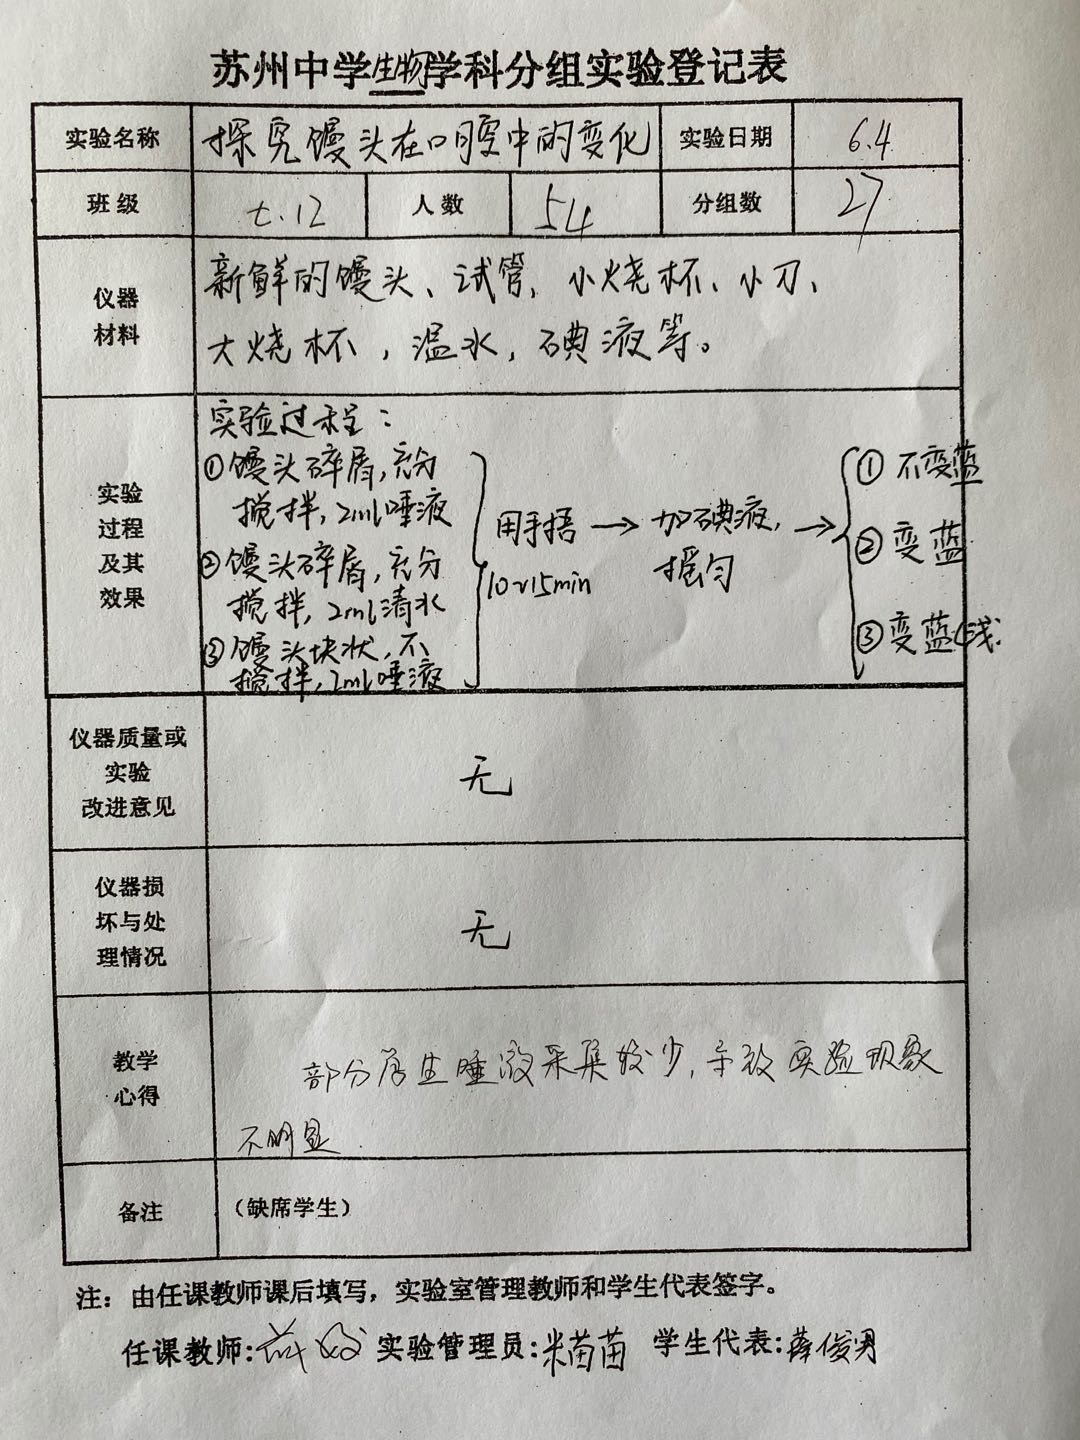 苏州中学生物学科分组实验登记表
实验名称 探究馒头在口腔中的变化 实验日期 6.4
班级 七.12 人数 54 分组数 27
仪器材料
新鲜的馒头、试管、小烧杯、小刀、
大烧杯，温水，碘液等。
实验过程及其效果
实验过程：
①馒头碎屑，充分
搅拌，2ml唾液
②馒头碎屑，充分
搅拌，2ml清水
③馒头块状，不
搅拌，2ml唾液
用手捂
10~15min
→ 加碘液，
摇匀
→
①不变蓝
②变蓝
③变蓝(浅)
仪器质量或
实验
改进意见
无
仪器损
坏与处
理情况
无
教学
心得
部分学生唾液采集较少，导致实验现象
不明显.
备注 （缺席学生）
注：由任课教师课后填写，实验室管理教师和学生代表签字。
任课教师: 实验管理员:米苗苗 学生代表:薛俊男